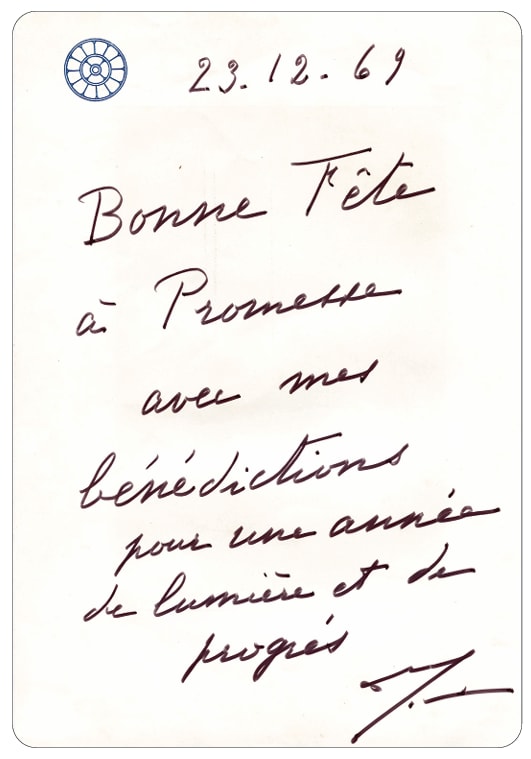 23.12.69
Bonne Fête
à Promesse
avec mes
bénédictions
pour une année
de lumière et de
progrès